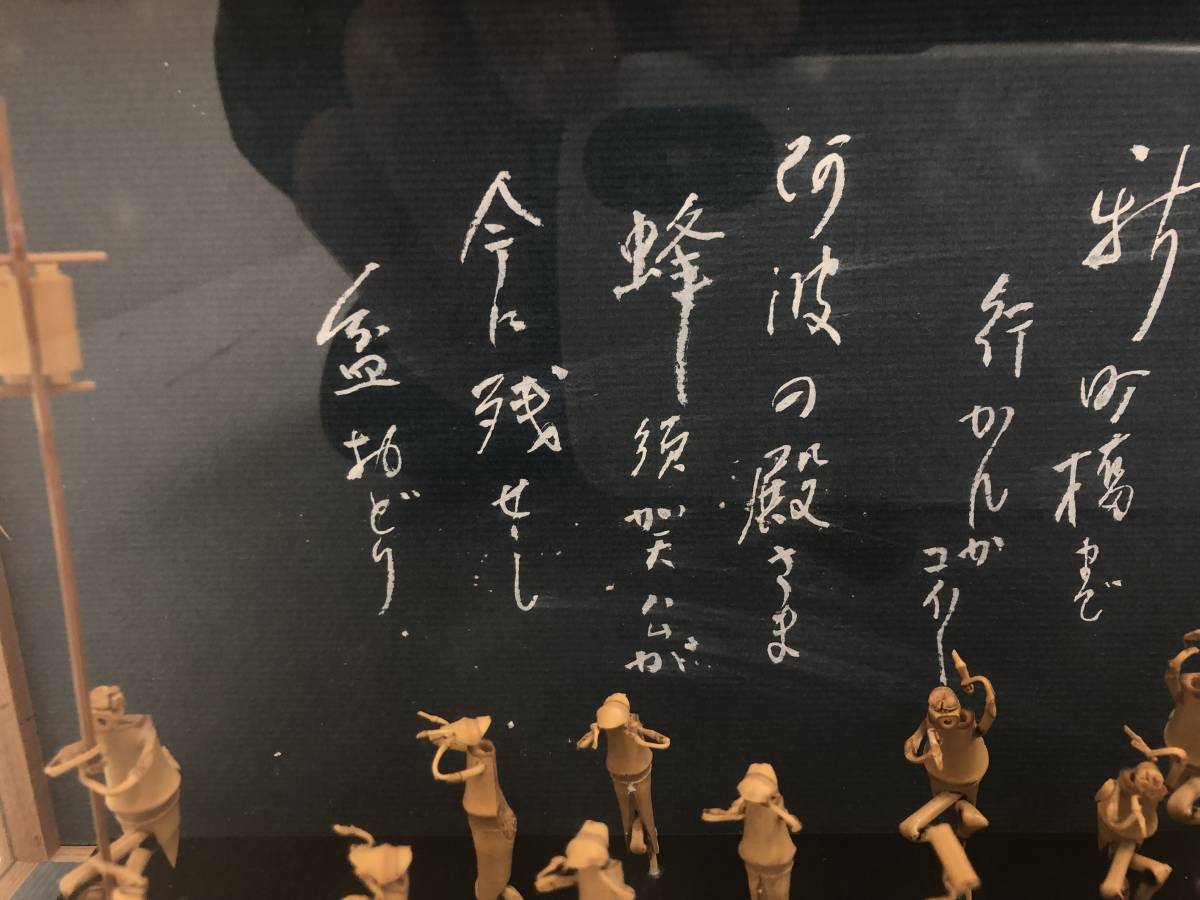 新町橋まで
行かんか
コイー
阿波の殿さま
蜂須賀公が
今に残せし
盆おどり